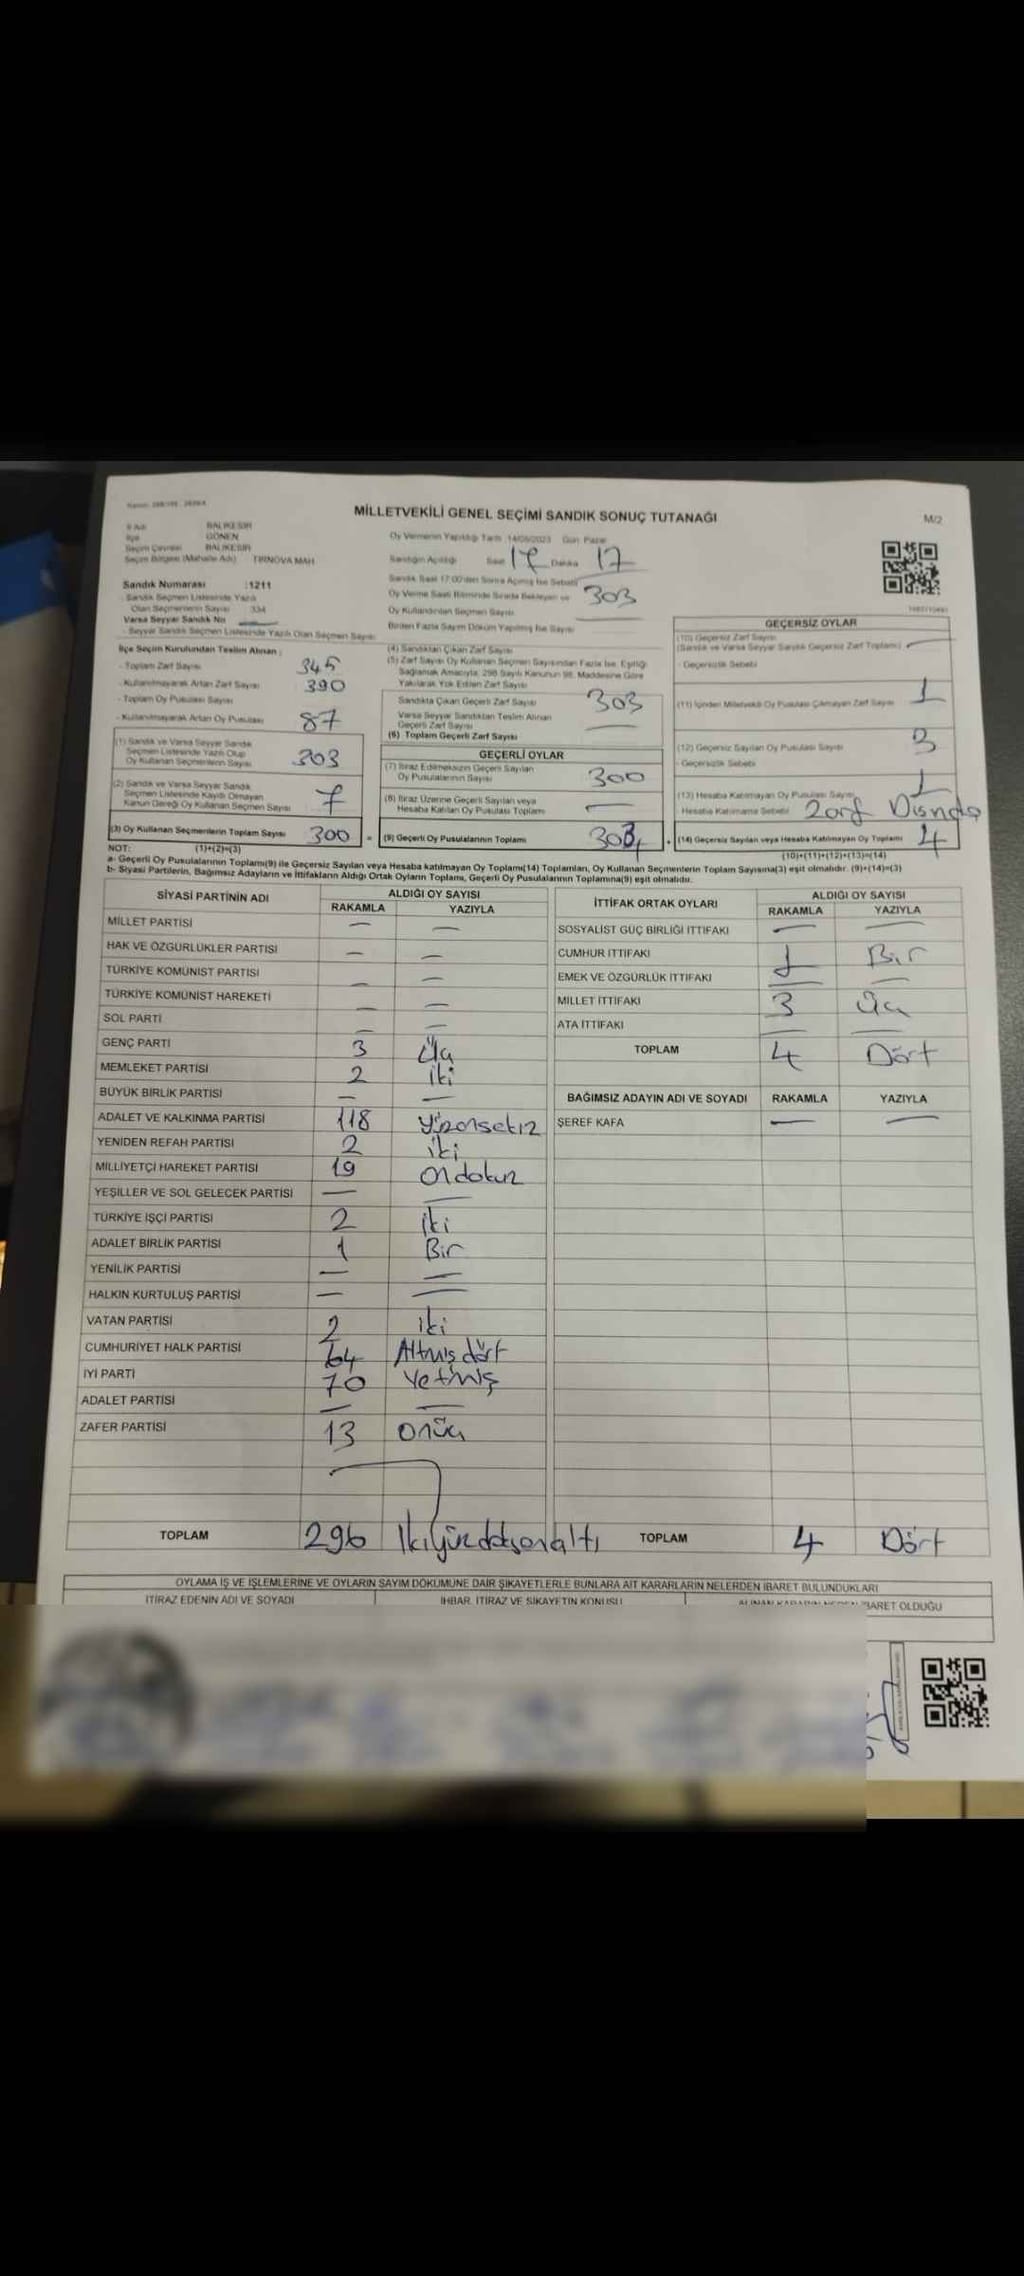 MİLLETVEKİLİ GENEL SEÇİMİ SANDIK SONUÇ TUTANAĞI
M/2
İl Adı BALIKESİR
İlçe GÖNEN
Seçim Çevresi BALIKESİR
Seçim Bölgesi (Mahalle Adı) TIRNOVA MAH
Sandık Numarası :1211
Sandık Seçmen Listesinde Yazılı
Olan Seçmenlerin Sayısı 334
Varsa Seyyar Sandık No —
Seyyar Sandık Seçmen Listesinde Yazılı Olan Seçmen Sayısı
Oy Vermenin Yapıldığı Tarih 14/05/2023 Gün Pazar
Sandığın Açıldığı Saat 17 Dakika 17
Sandık Saat 17:00'den Sonra Açılmış İse Sebebi
Oy Verme Saati Bitiminde Sırada Bekleyen ve 303
Oy Kullandırılan Seçmen Sayısı
Birden Fazla Sayım Döküm Yapılmış İse Sayısı
İlçe Seçim Kurulundan Teslim Alınan :
- Toplam Zarf Sayısı 345
- Kullanılmayarak Artan Zarf Sayısı 390
- Toplam Oy Pusulası Sayısı
- Kullanılmayarak Artan Oy Pusulası 87
(1) Sandık ve Varsa Seyyar Sandık
Seçmen Listesinde Yazılı Olup
Oy Kullanan Seçmenlerin Sayısı 303
(2) Sandık ve Varsa Seyyar Sandık
Seçmen Listesinde Kayıtlı Olmayan
Kanun Gereği Oy Kullanan Seçmen Sayısı 7
(3) Oy Kullanan Seçmenlerin Toplam Sayısı 300 =
(4) Sandıktan Çıkan Zarf Sayısı
(5) Zarf Sayısı Oy Kullanan Seçmen Sayısından Fazla İse, Eşitliği
Sağlamak Amacıyla, 298 Sayılı Kanunun 98. Maddesine Göre
Yakılarak Yok Edilen Zarf Sayısı
Sandıkta Çıkan Geçerli Zarf Sayısı 303
Varsa Seyyar Sandıktan Teslim Alınan
Geçerli Zarf Sayısı —
(6) Toplam Geçerli Zarf Sayısı
GEÇERLİ OYLAR
(7) İtiraz Edilmeksizin Geçerli Sayılan
Oy Pusulalarının Sayısı 300
(8) İtiraz Üzerine Geçerli Sayılan veya
Hesaba Katılan Oy Pusulası Toplamı —
(9) Geçerli Oy Pusulalarının Toplamı
GEÇERSİZ OYLAR
(10) Geçersiz Zarf Sayısı
(Sandık ve Varsa Seyyar Sandık Geçersiz Zarf Toplamı) —
- Geçersizlik Sebebi
(11) İçinden Milletvekili Oy Pusulası Çıkmayan Zarf Sayısı 1
(12) Geçersiz Sayılan Oy Pusulası Sayısı 3
- Geçersizlik Sebebi
(13) Hesaba Katılmayan Oy Pusulası Sayısı 1
Hesaba Katılmama Sebebi Zarf Dışında
+ (14) Geçersiz Sayılan veya Hesaba Katılmayan Oy Toplamı 4
NOT: (1)+(2)=(3)
(10)+(11)+(12)+(13)=(14)
a- Geçerli Oy Pusulalarının Toplamı(9) ile Geçersiz Sayılan veya Hesaba katılmayan Oy Toplamı(14) Toplamları, Oy Kullanan Seçmenlerin Toplam Sayısına(3) eşit olmalıdır. (9)+(14)=(3)
b- Siyasi Partilerin, Bağımsız Adayların ve İttifakların Aldığı Ortak Oyların Toplamı, Geçerli Oy Pusulalarının Toplamına(9) eşit olmalıdır.
SİYASİ PARTİNİN ADI ALDIĞI OY SAYISI
RAKAMLA YAZIYLA
MİLLET PARTİSİ — —
HAK VE ÖZGÜRLÜKLER PARTİSİ — —
TÜRKİYE KOMÜNİST PARTİSİ — —
TÜRKİYE KOMÜNİST HAREKETİ — —
SOL PARTİ — —
GENÇ PARTİ 3 Üç
MEMLEKET PARTİSİ 2 İki
BÜYÜK BİRLİK PARTİSİ — —
ADALET VE KALKINMA PARTİSİ 118 Yüzonsekiz
YENİDEN REFAH PARTİSİ 2 iki
MİLLİYETÇİ HAREKET PARTİSİ 19 Ondokuz
YEŞİLLER VE SOL GELECEK PARTİSİ — —
TÜRKİYE İŞÇİ PARTİSİ 2 İki
ADALET BİRLİK PARTİSİ 1 Bir
YENİLİK PARTİSİ — —
HALKIN KURTULUŞ PARTİSİ — —
VATAN PARTİSİ 2 iki
CUMHURİYET HALK PARTİSİ 64 Altmış dört
İYİ PARTİ 70 Yetmiş
ADALET PARTİSİ — —
ZAFER PARTİSİ 13 Onüç
TOPLAM 296 İkiyüzdoksanaltı
İTTİFAK ORTAK OYLARI ALDIĞI OY SAYISI
RAKAMLA YAZIYLA
SOSYALİST GÜÇ BİRLİĞİ İTTİFAKI — —
CUMHUR İTTİFAKI 1 Bir
EMEK VE ÖZGÜRLÜK İTTİFAKI — —
MİLLET İTTİFAKI 3 Üç
ATA İTTİFAKI — —
TOPLAM 4 Dört
BAĞIMSIZ ADAYIN ADI VE SOYADI RAKAMLA YAZIYLA
ŞEREF KAFA — —
TOPLAM 4 Dört
OYLAMA İŞ VE İŞLEMLERİNE VE OYLARIN SAYIM DÖKÜMÜNE DAİR ŞİKAYETLERLE BUNLARA AİT KARARLARIN NELERDEN İBARET BULUNDUKLARI
İTİRAZ EDENİN ADI VE SOYADI İHBAR, İTİRAZ VE ŞİKAYETİN KONUSU ALINAN KARARIN NEDEN İBARET OLDUĞU